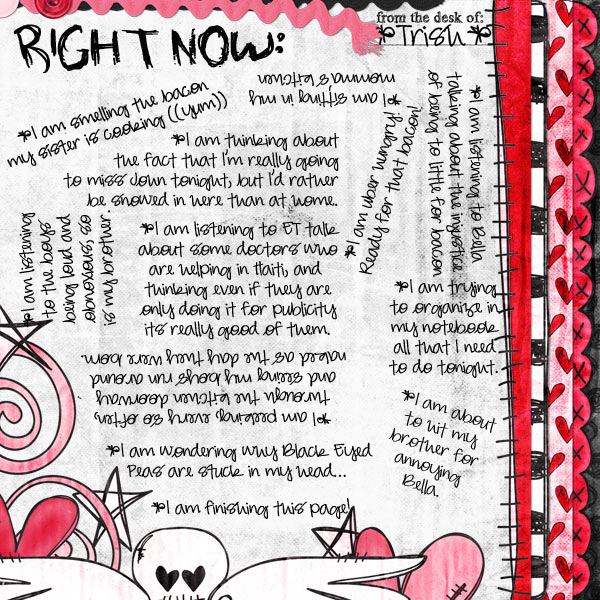 RIGHT NOW:
from the desk of:
*Trish*
*I am smelling the bacon
my sister is cooking ((yum))
*I am sitting in my
momma's kitchen
*I am thinking about
the fact that I'm really going
to miss John tonight, but I'd rather
be snowed in here than at home.
*I am uber hungry!
Ready for that bacon!
*I am listening to Bella
talking about the injustice
of being to little for bacon
*I am listening
to the boys
being loud and
obnoxious, so
is my brother.
*I am listening to ET talk
about some doctors who
are helping in Haiti, and
thinking even if they are
only doing it for publicity
it's really good of them.
*I am trying
to organize in
my notebook
all that I need
to do tonight.
*I am peering every so often
through the kitchen doorway
and seeing my boys run around
naked as the day they were born.
*I am about
to hit my
brother for
annoying
Bella.
*I am wondering why Black Eyed
Peas are stuck in my head...
*I am finishing this page!